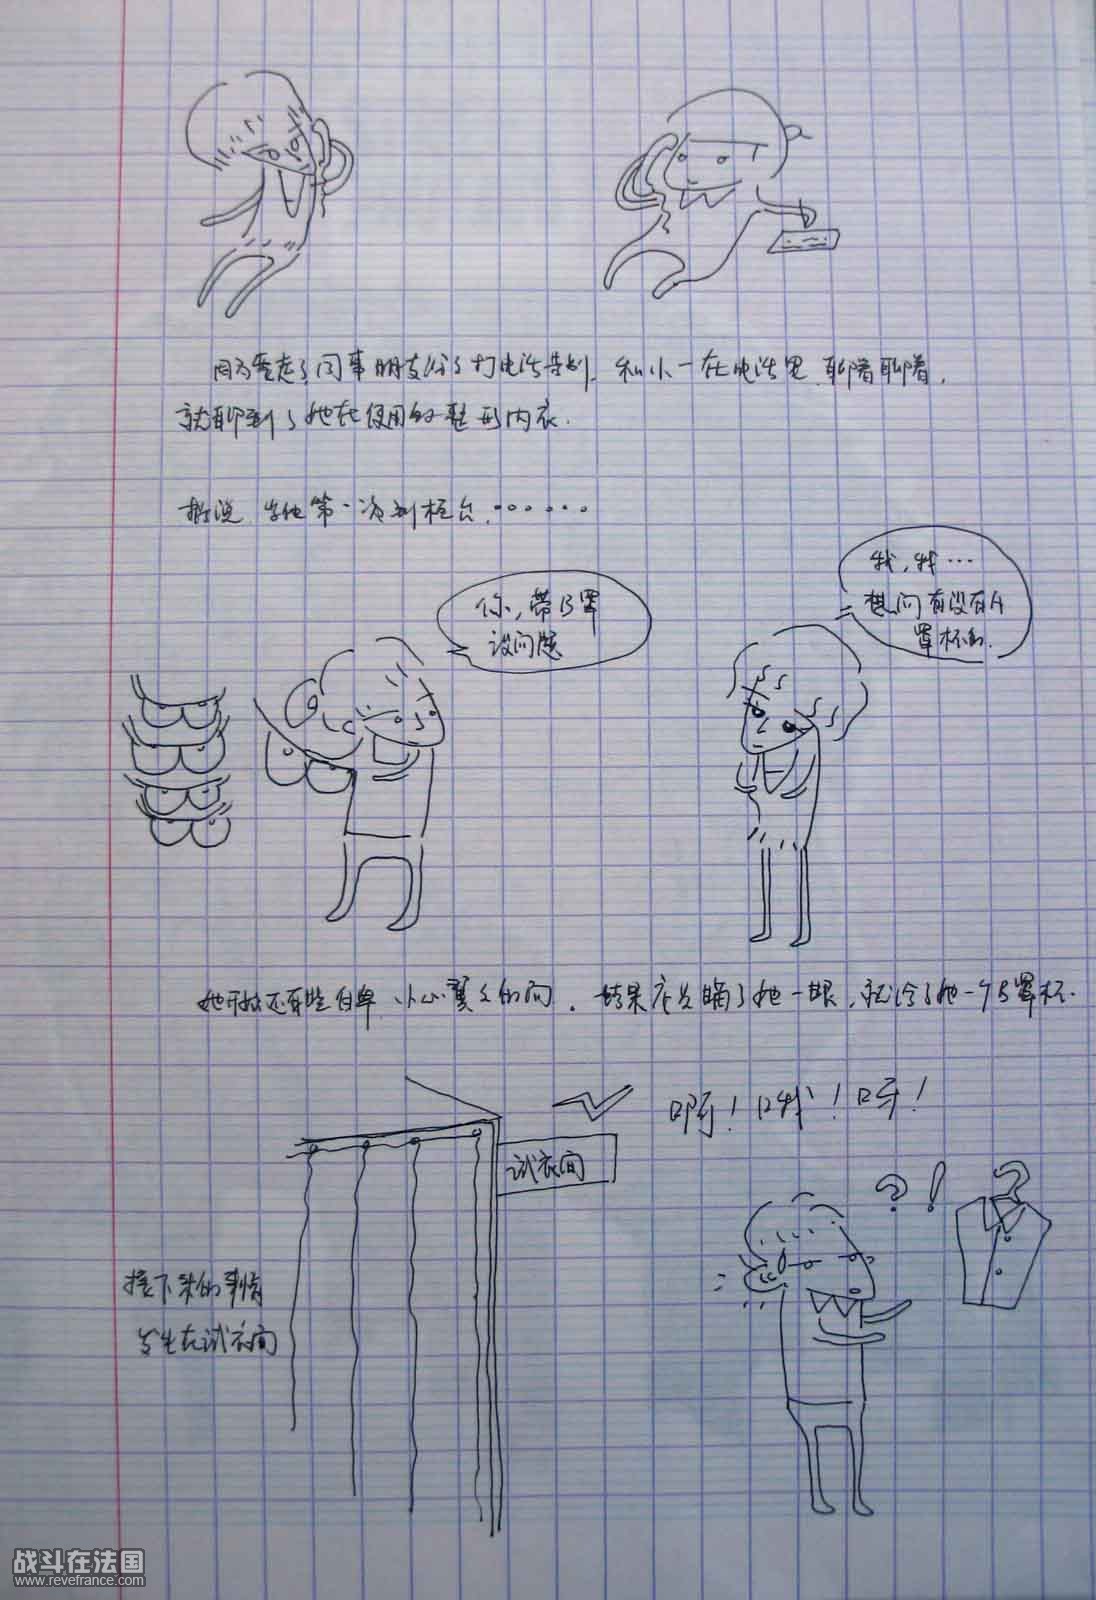 因为要走了,同事朋友给了打电话告别,和小一在电话里,聊着聊着,
就聊到了她在使用的整形内衣.
据说 当她第一次到柜台.......
你,带B罩
没问题
我,我...
想问有没有A
罩杯的.
她开始还有些自卑,小心翼々的问.结果店员瞄了她一眼,就给了她一个B罩杯.
啊!哦!呀!
试衣间
接下来的事情
发生在试衣间
战斗在法国
www.revefrance.com